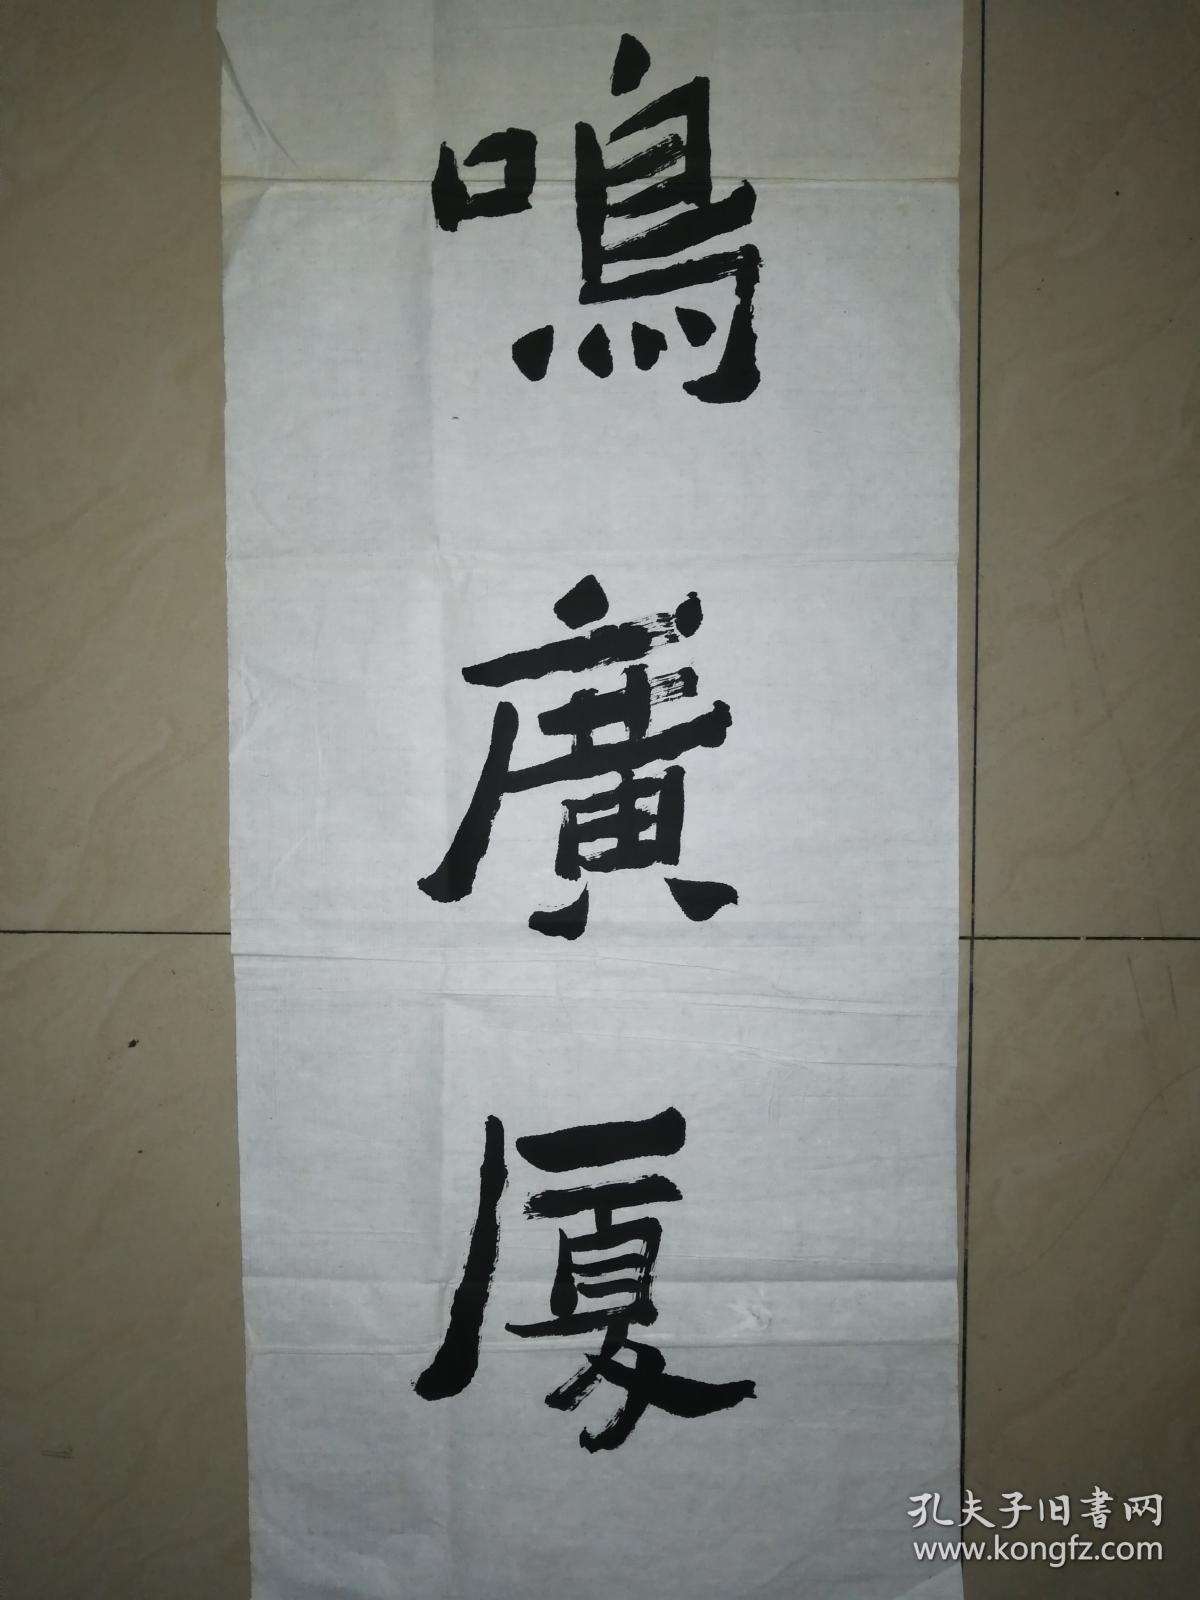 鳴廣厦
孔夫子旧書网
www.kongfz.com